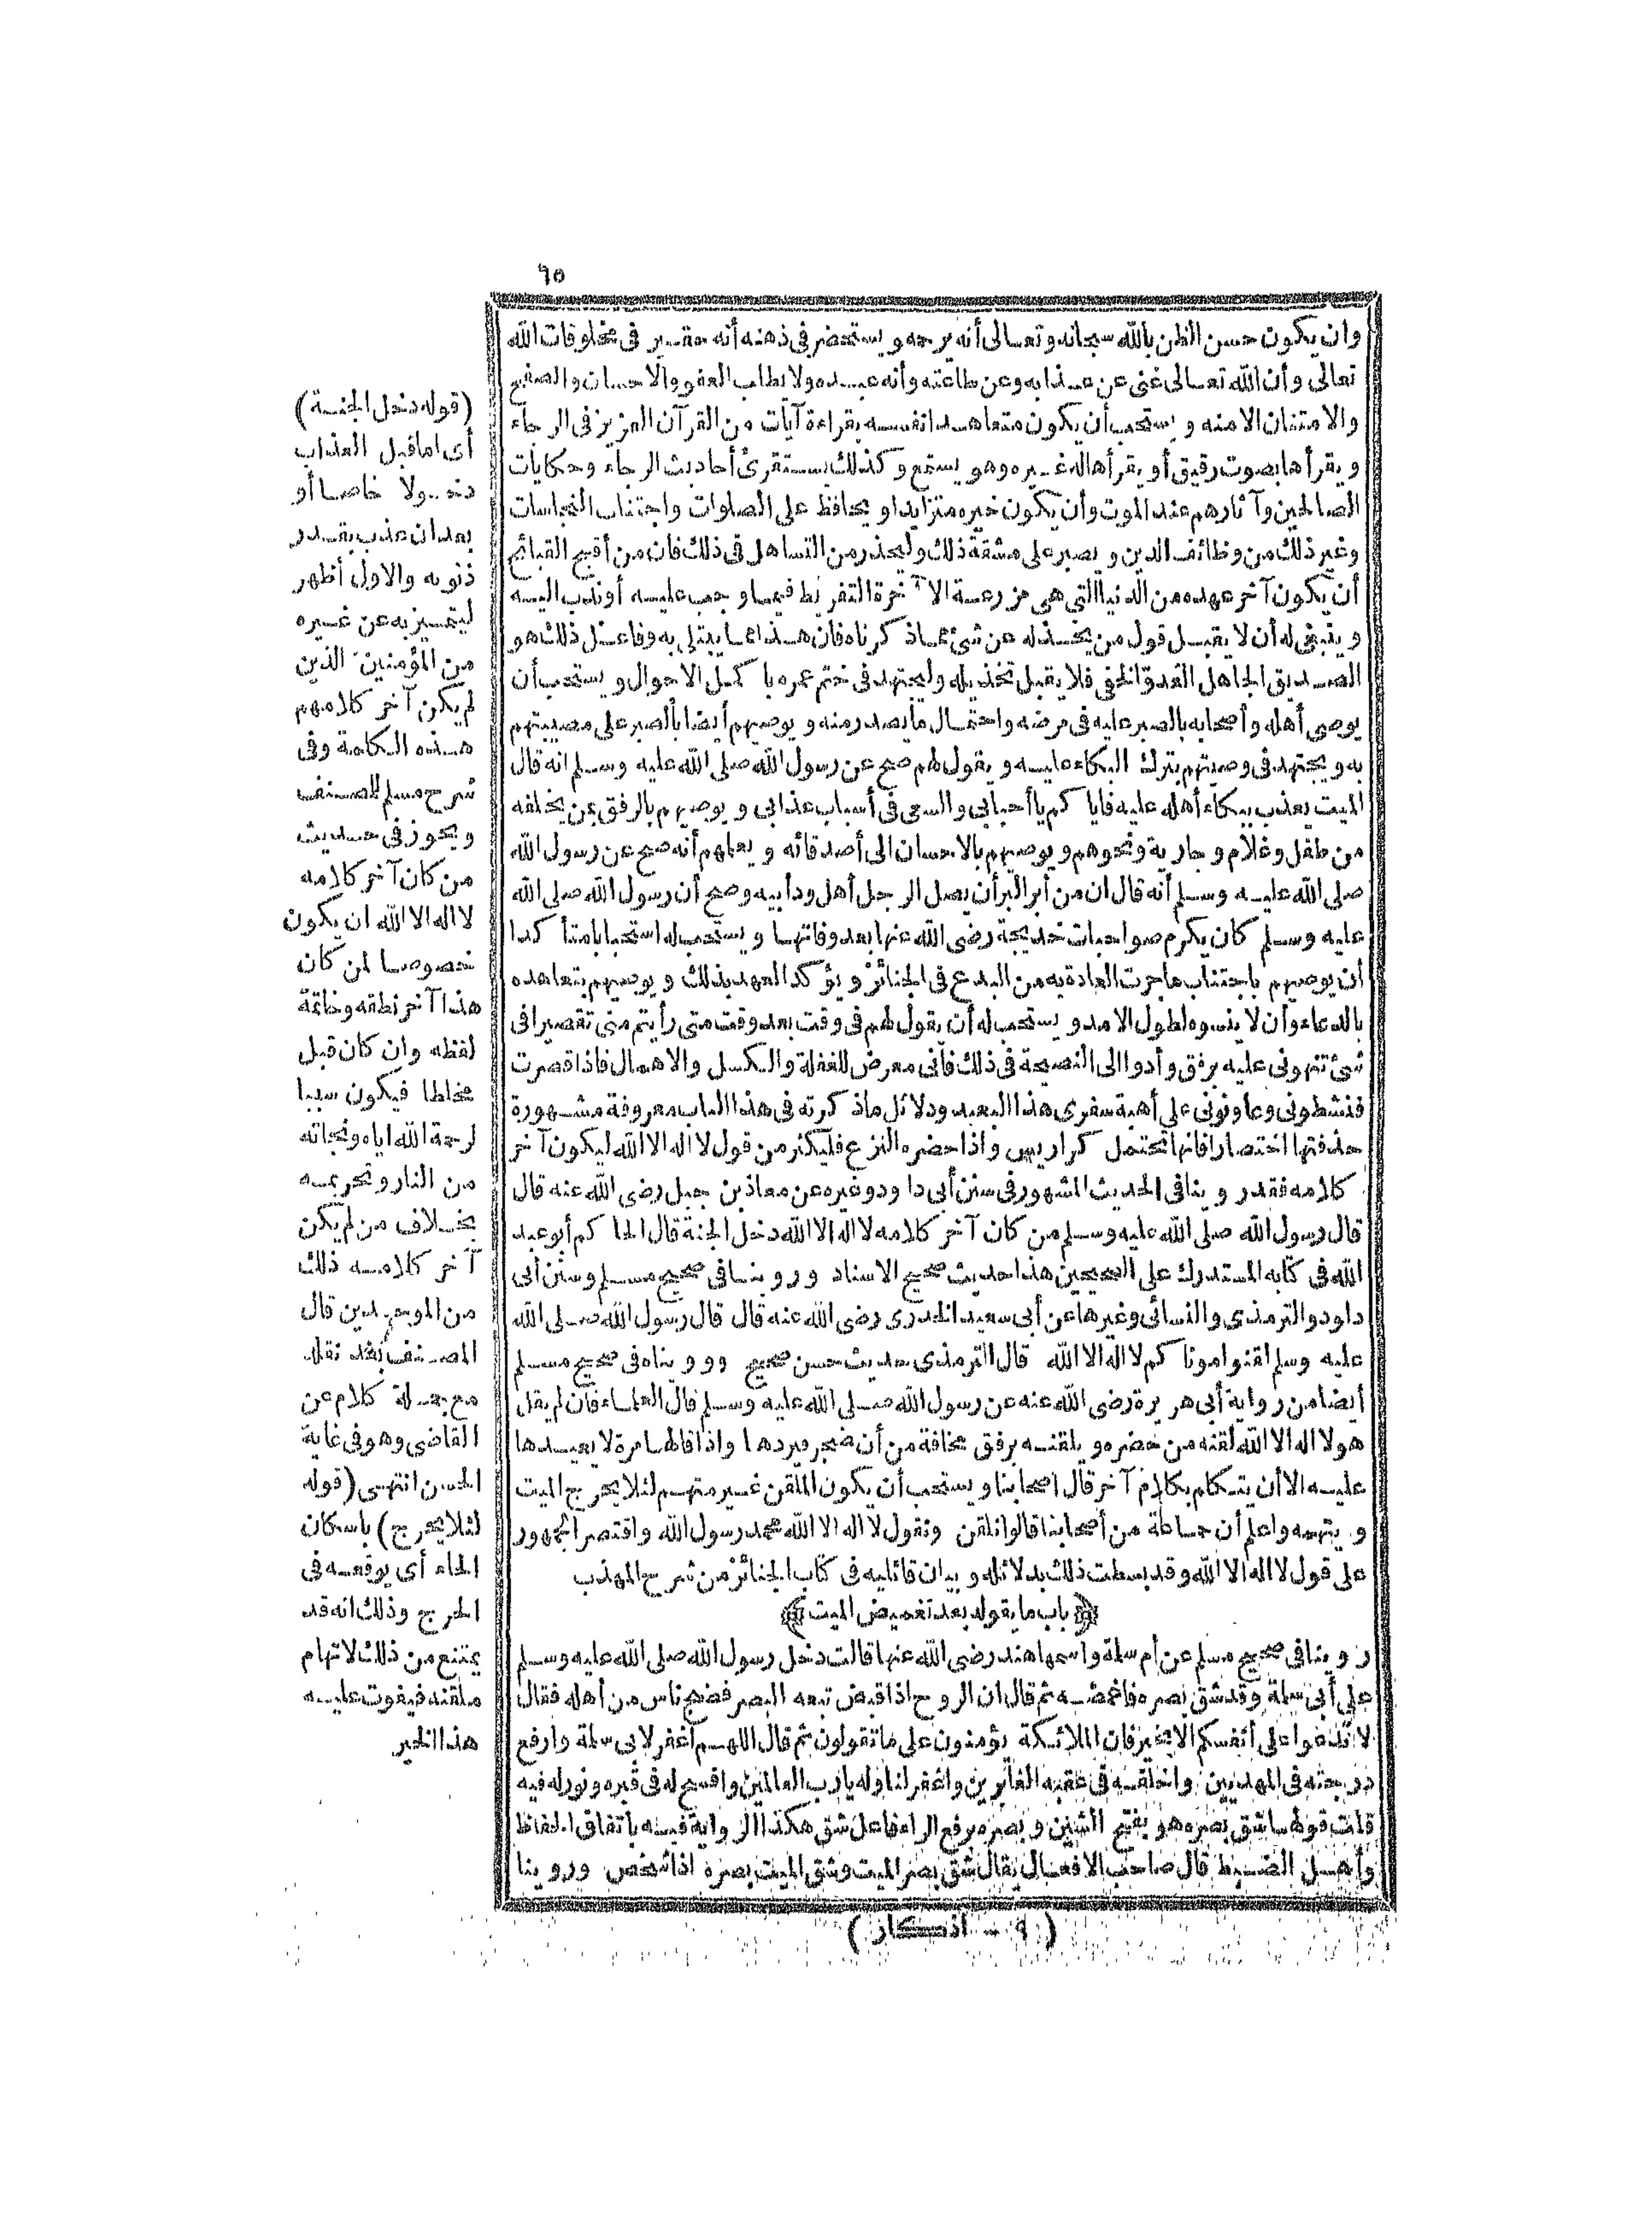 ٦٥
وان يكون حسن الظن بالله سبحانه وتعالى أنه يرحمه ويستحضر في ذهنه أنه حقير في مخلوقات الله
تعالى وأن الله تعالى غنى عن عذابه وعن طاعته وأنه عبده ولا يطلب العفو والاحسان والصفح
والامتنان الا منه ويستحب أن يكون متعاهدا نفسه بقراءة آيات من القرآن العزيز فى الرجاء
ويقرأها بصوت رقيق أو يقرأها له غيره وهو يستمع وكذلك يستقرئ أحاديث الرجاء وحكايات
الصالحين وآثارهم عند الموت وأن يكون خيره متزايدا ويحافظ على الصلوات واجتناب النجاسات
وغير ذلك من وظائف الدين ويصبر على مشقة ذلك وليحذر من التساهل فى ذلك فان من أقبح القبائح
أن يكون آخر عهده من الدنيا التي هى مزرعة الآخرة التفريط فيما وجب عليه أو ندب اليه
وينبغى له أن لا يقبل قول من يخذله عن شئ مما ذكرناه فان هذا مما يبتلى به وفاعل ذلك هو
الصديق الجاهل العدو الخفى فلا يقبل تخذيله وليجتهد فى ختم عمره باكمل الاحوال ويستحب أن
يوصى أهله وأصحابه بالصبر عليه فى مرضه واحتمال ما يصدر منه ويوصيهم أيضا بالصبر على مصيبتهم
به ويجتهد فى وصيتهم بترك البكاء عليه ويقول لهم صح عن رسول الله صلى الله عليه وسلم انه قال
الميت يعذب ببكاء أهله عليه فاياكم يا أحبابى والسعى فى أسباب عذابى ويوصيهم بالرفق بمن يخلفه
من طفل وغلام وجارية ونحوهم ويوصيهم بالاحسان الى أصدقائه ويعلمهم أنه صح عن رسول الله
صلى الله عليه وسلم أنه قال ان من أبر البر أن يصل الرجل أهل ود أبيه وصح أن رسول الله صلى الله
عليه وسلم كان يكرم صواحبات خديجة رضى الله عنها بعد وفاتها ويستحب له استحبابا متأكدا
أن يوصيهم باجتناب ما جرت العادة به من البدع فى الجنائز ويؤكد العهد بذلك ويوصيهم بتعاهده
بالدعاء وأن لا ينسوه لطول الامد ويستحب له أن يقول لهم فى وقت بعد وقت متى رأيتم منى تقصيرا فى
شئ تنهونى عليه برفق وأدوا الى النصيحة فى ذلك فانى معرض للغفلة والكسل والاهمال فاذا قصرت
فنشطونى وعاونونى على أهبة سفرى هذا البعيد ودلائل ما ذكرته فى هذا الباب معروفة مشهورة
حذفتها اختصارا فانها تحتمل كراريس واذا حضره النزع فليكثر من قول لا اله الا الله ليكون آخر
كلامه فقد روينا فى الحديث المشهور فى سنن أبى داود وغيره عن معاذ بن جبل رضى الله عنه قال
قال رسول الله صلى الله عليه وسلم من كان آخر كلامه لا اله الا الله دخل الجنة قال الحاكم أبو عبد
الله فى كتابه المستدرك على الصحيحين هذا حديث صحيح الاسناد وروينا فى صحيح مسلم وسنن أبى
داود والترمذى والنسائى وغيرها عن أبى سعيد الخدرى رضى الله عنه قال قال رسول الله صلى الله
عليه وسلم لقنوا موتاكم لا اله الا الله قال الترمذى حديث حسن صحيح وروبناه فى صحيح مسلم
أيضا من رواية أبى هريرة رضى الله عنه عن رسول الله صلى الله عليه وسلم قال العلماء فان لم يقل
هو لا اله الا الله لقنه من حضره ويلقنه برفق مخافة من أن ضجر فيردها واذا قالها مرة لا يعيدها
عليه الا أن يتكلم بكلام آخر قال اصحابنا ويستحب أن يكون الملقن غير متهم لئلا يحرج الميت
ويتهمه واعلم أن جماعة من أصحابنا قالوا نلقن ونقول لا اله الا الله محمد رسول الله واقتصر الجمهور
على قول لا اله الا الله وقد بسطت ذلك بدلائله وبيان قائليه فى كتاب الجنائز من شرح المهذب
﴿ باب ما يقوله بعد تغميض الميت ﴾
روينا فى صحيح مسلم عن أم سلمة واسمها هند رضى الله عنها قالت دخل رسول الله صلى الله عليه وسلم
على أبى سلمة وقد شق بصره فاغمضه ثم قال ان الروح اذا قبض تبعه البصر فضج ناس من أهله فقال
لا تدعوا على أنفسكم الا بخير فان الملائكة يؤمنون على ما تقولون ثم قال اللهم اغفر لابى سلمة وارفع
درجته فى المهديين واخلفه فى عقبه الغابرين واغفر لنا وله يارب العالمين وافسح له فى قبره ونور له فيه
قلت قولها شق بصره هو بفتح الشين وبصره برفع الراء فاعل شق هكذا الرواية فيه باتفاق الحفاظ
وأهل الضبط قال صاحب الافعال يقال شق بصر الميت وشق الميت بصره اذا شخص وروينا
( ٩ - أذكار )
(قوله دخل الجنة)
أى اما قبل العذاب
دخولا خاصا أو
بعد ان عذب بقدر
ذنوبه والاول أظهر
ليتميز به عن غيره
من المؤمنين الذين
لم يكن آخر كلامهم
هذه الكلمة وفى
شرح مسلم للمصنف
ويجوز فى حديث
من كان آخر كلامه
لا اله الا الله ان يكون
خصوصا لمن كان
هذا آخر نطقه وخاتمة
لفظه وان كان قبل
مخلطا فيكون سببا
لرحمة الله اياه ونجاته
من النار وتحريمه
بخلاف من لم يكن
آخر كلامه ذلك
من الموحدين قال
المصنف بعد نقله
مع جملة كلام عن
القاضى وهو فى غاية
الحسن انتهى (قوله
لئلا يحرج) باسكان
الحاء أى يوقعه فى
الحرج وذلك انه قد
يمتنع من ذلك لاتهام
ملقنه فيفوت عليه
هذا الخير